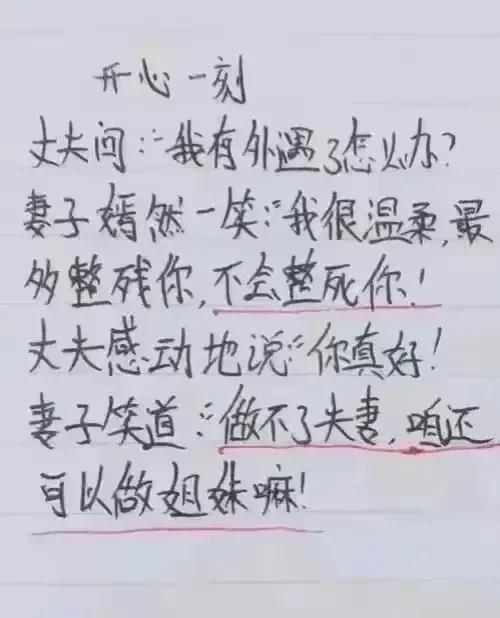 开心一刻
丈夫问:"我有外遇了怎么办?
妻子嫣然一笑:"我很温柔,最
多整残你,不会整死你!
丈夫感动地说:"你真好!
妻子笑道:"做不了夫妻,咱还
可以做姐妹嘛!